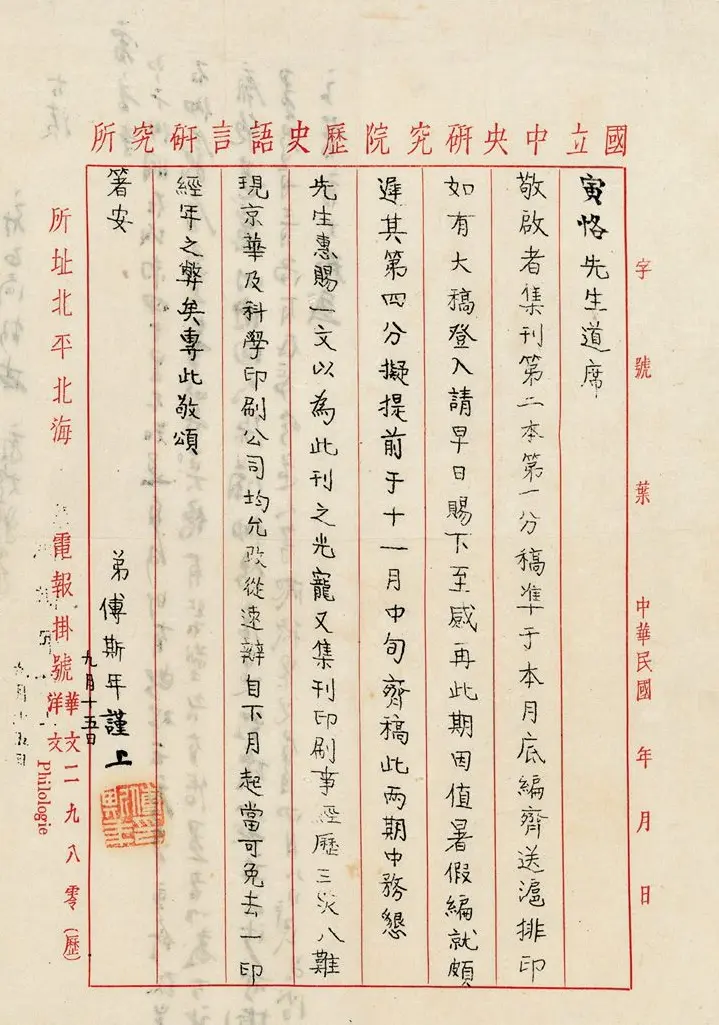 國立中央研究院歷史語言研究所
字號 葉 中華民國 年 月 日
寅恪先生道席
敬啟者集刊第二本第一分稿準于本月底編齊送滬排印
如有大稿登入請早日賜下至感再此期因值暑假編就頗
遲其第四分擬提前于十一月中旬齊稿此兩期中務懇
先生惠賜一文以為此刊之光寵又集刊印刷事經歷三災八難
現京華及科學印刷公司均允改從速辦自下月起當可免去一印
經年之弊矣專此敬頌
箸安
弟傅斯年謹上
九月十五日
所址北平北海
電報掛號 華文二九八零(歷)
洋文 Philologie
傅斯年